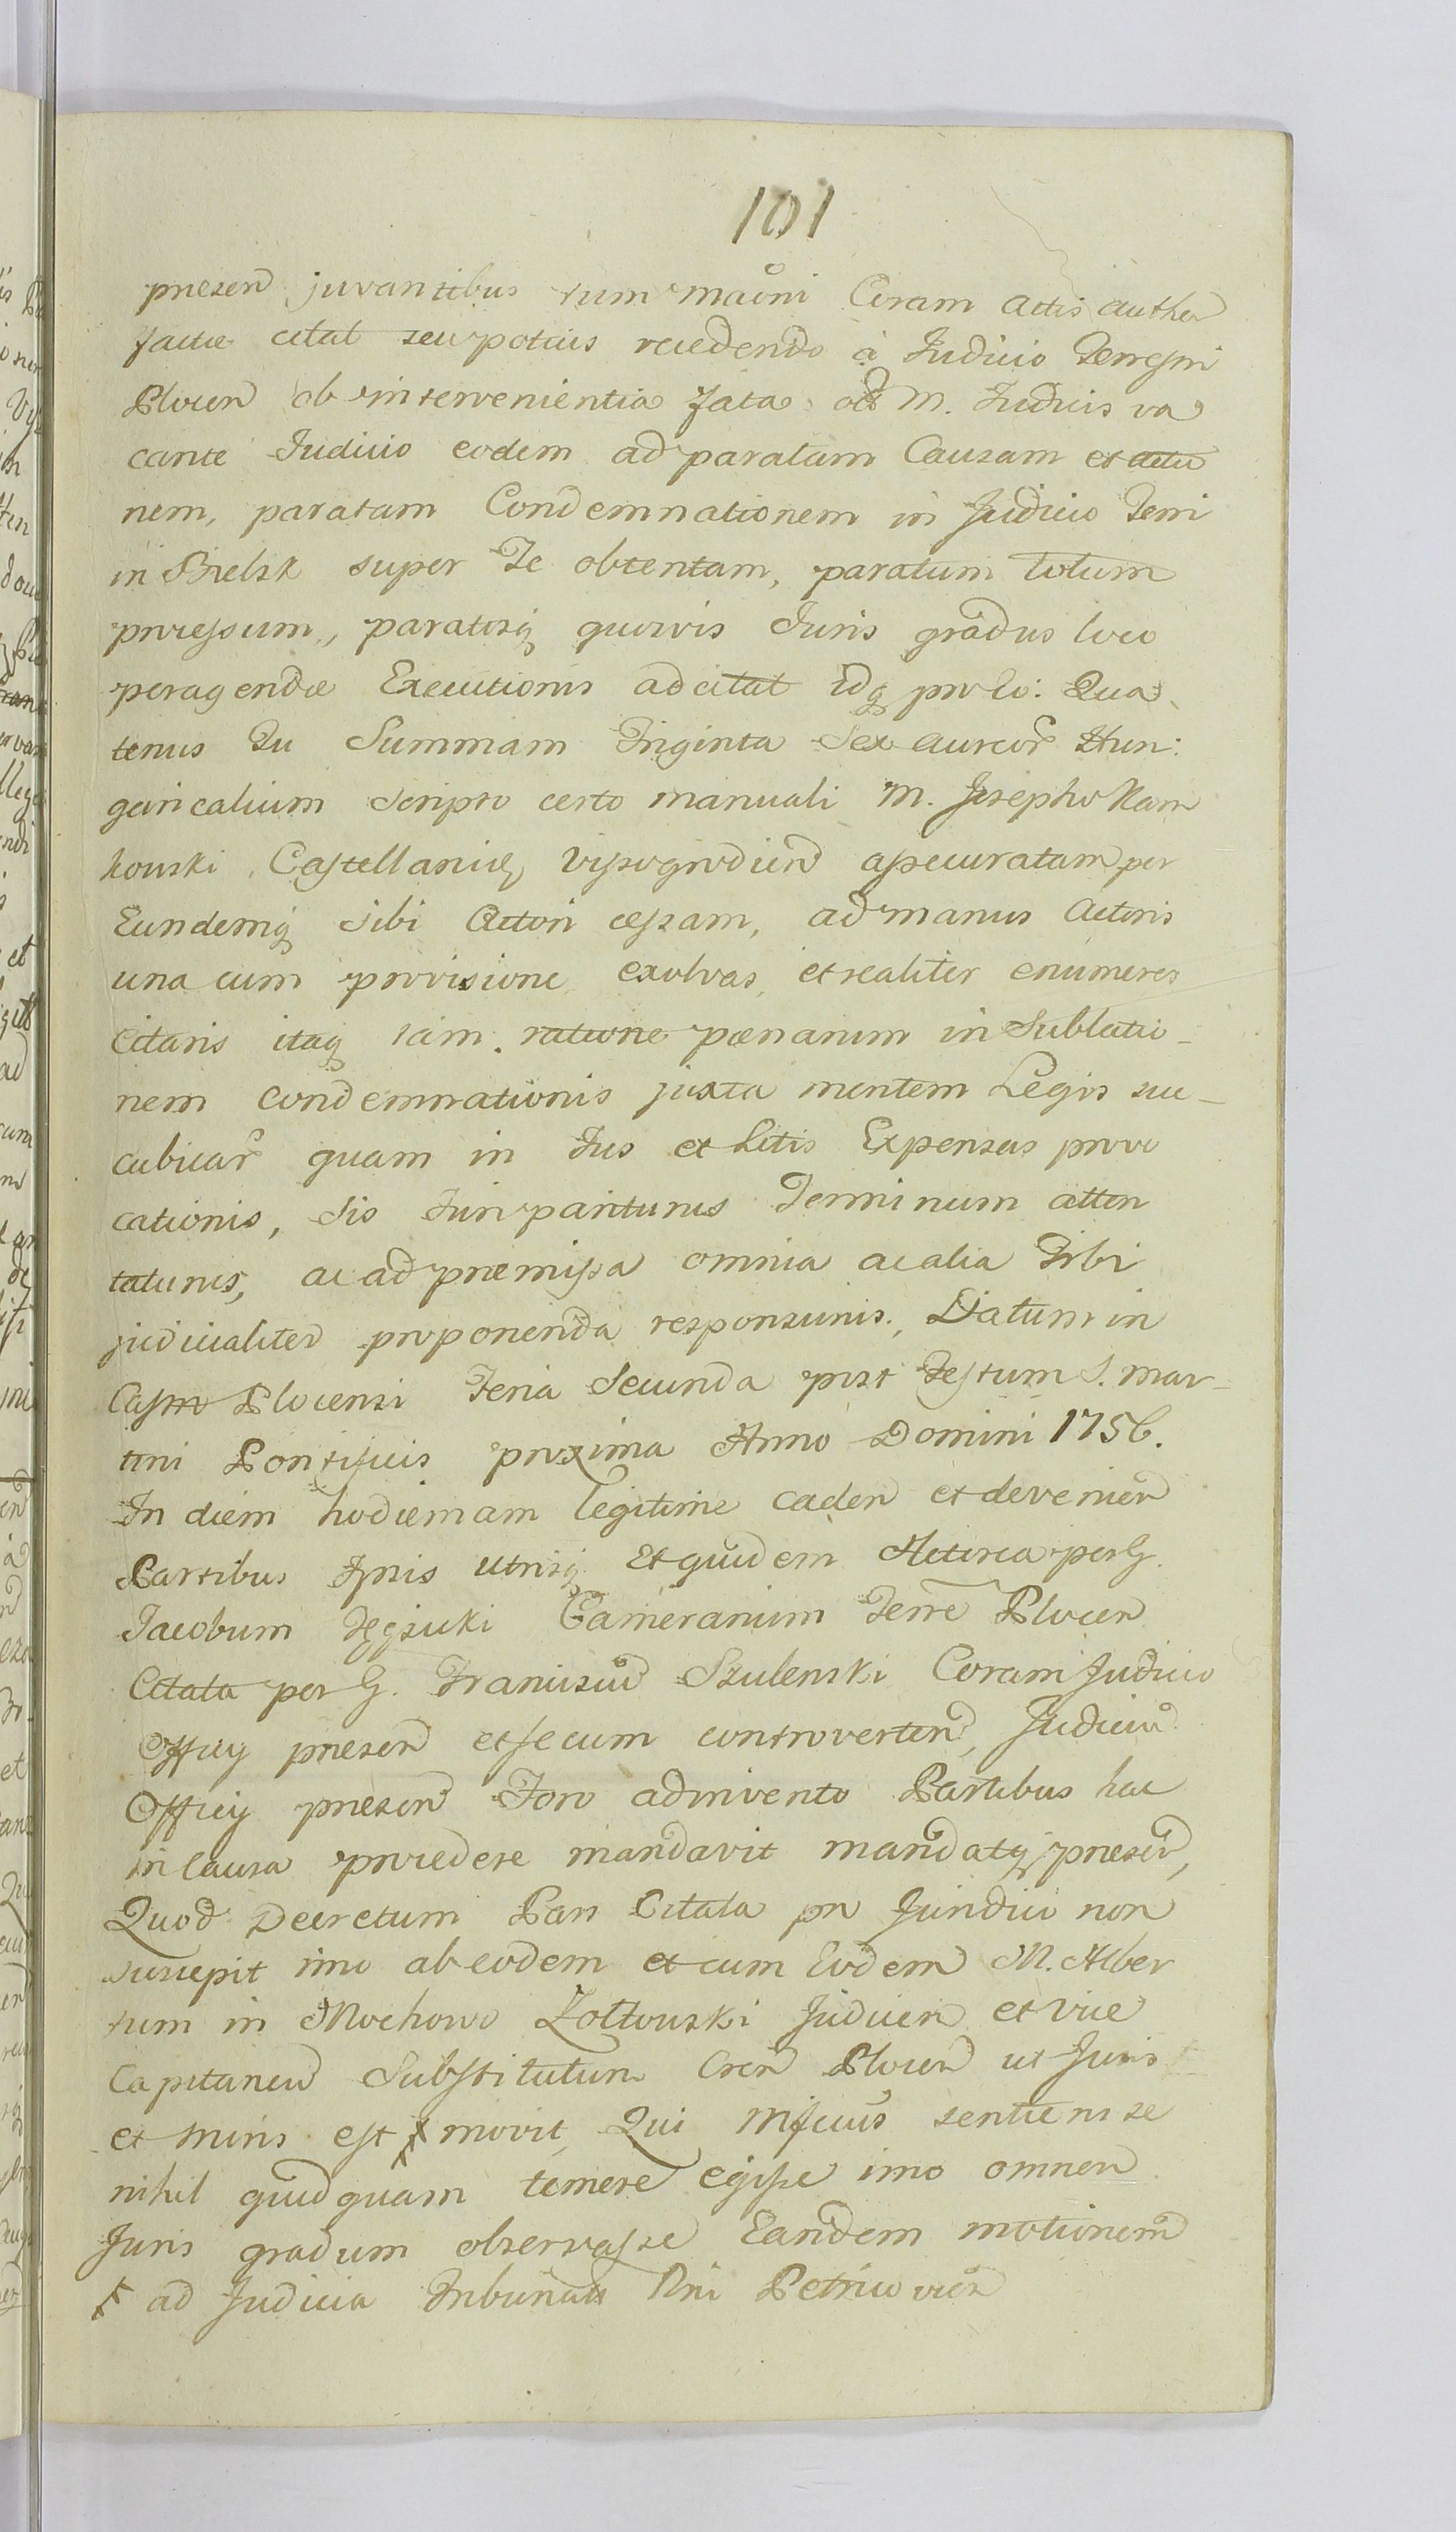 101
presen juvantibus tum maōni Coram Actis authen
facta citat seu potius recedendo à Judicio Terrestri
Plocen ob intervenientia fata olim M. Judicis va
cante Judicio eodem ad paratam Causam et actio
nem, paratam Condemnationem in Judicio Terri
in Bielsk super Te obtentam, paratum totum
processum, paratosq quosvis Juris gradus loco
peragendæ Executionis adcitat idq pro eo: Qua
tenus Tu Summam Triginta Sex aureor Hun:
garicalium Scripto certo manuali M. Josepho Nam
kowski Castellanicz Vyszogrodien assecuratam per
Eundemq Sibi Actori cessam, ad manus Actoris
una cum provisione exolvas, et realiter enumeres
Citaris itaq tam ratione pœnarum in Sublatio_
nem condemnationis juxta mentem Legis suc_
cubicar quam in Jus et Litis Expensas provo
cationis, Sis Juri pariturus Terminum atten
taturus, ac ad præmissa omnia ac alia Tibi
judicialiter proponenda responsurus., Datum in
Castro Plocensi Feria Secunda post Festum S. Mar_
tini Pontificis proxima Anno Domini 1756.
In diem hodiernam legitime caden et devenien
Partibus Ipsis utrisq Et quidem Actorea per G.
Jacobum Camerarium Terræ Plocen
Citata per G. Franciscum Szulenski Coram Judicio
Officy presen et secum controverten, Judicium
Officy presen Foro adinvento Partibus hac
in Causa procedere mandavit mandatq presen,
Quod Decretum Pars Citata pro Juridico non
suscepit imo ab eodem et cum Eodem M. Alber
tum in Mochowo Zołtowski Judicem et Vice
Capitaneum Substitutum Cren Plocen ut Juris
et Moris est ⨯ movit, Qui Mficus sentiens se
nihil quidquam temere egisse imo omnem
Juris gradum observasse Eandem motionem
⨯ ad Judicia Tribunalis Rni Petricovien